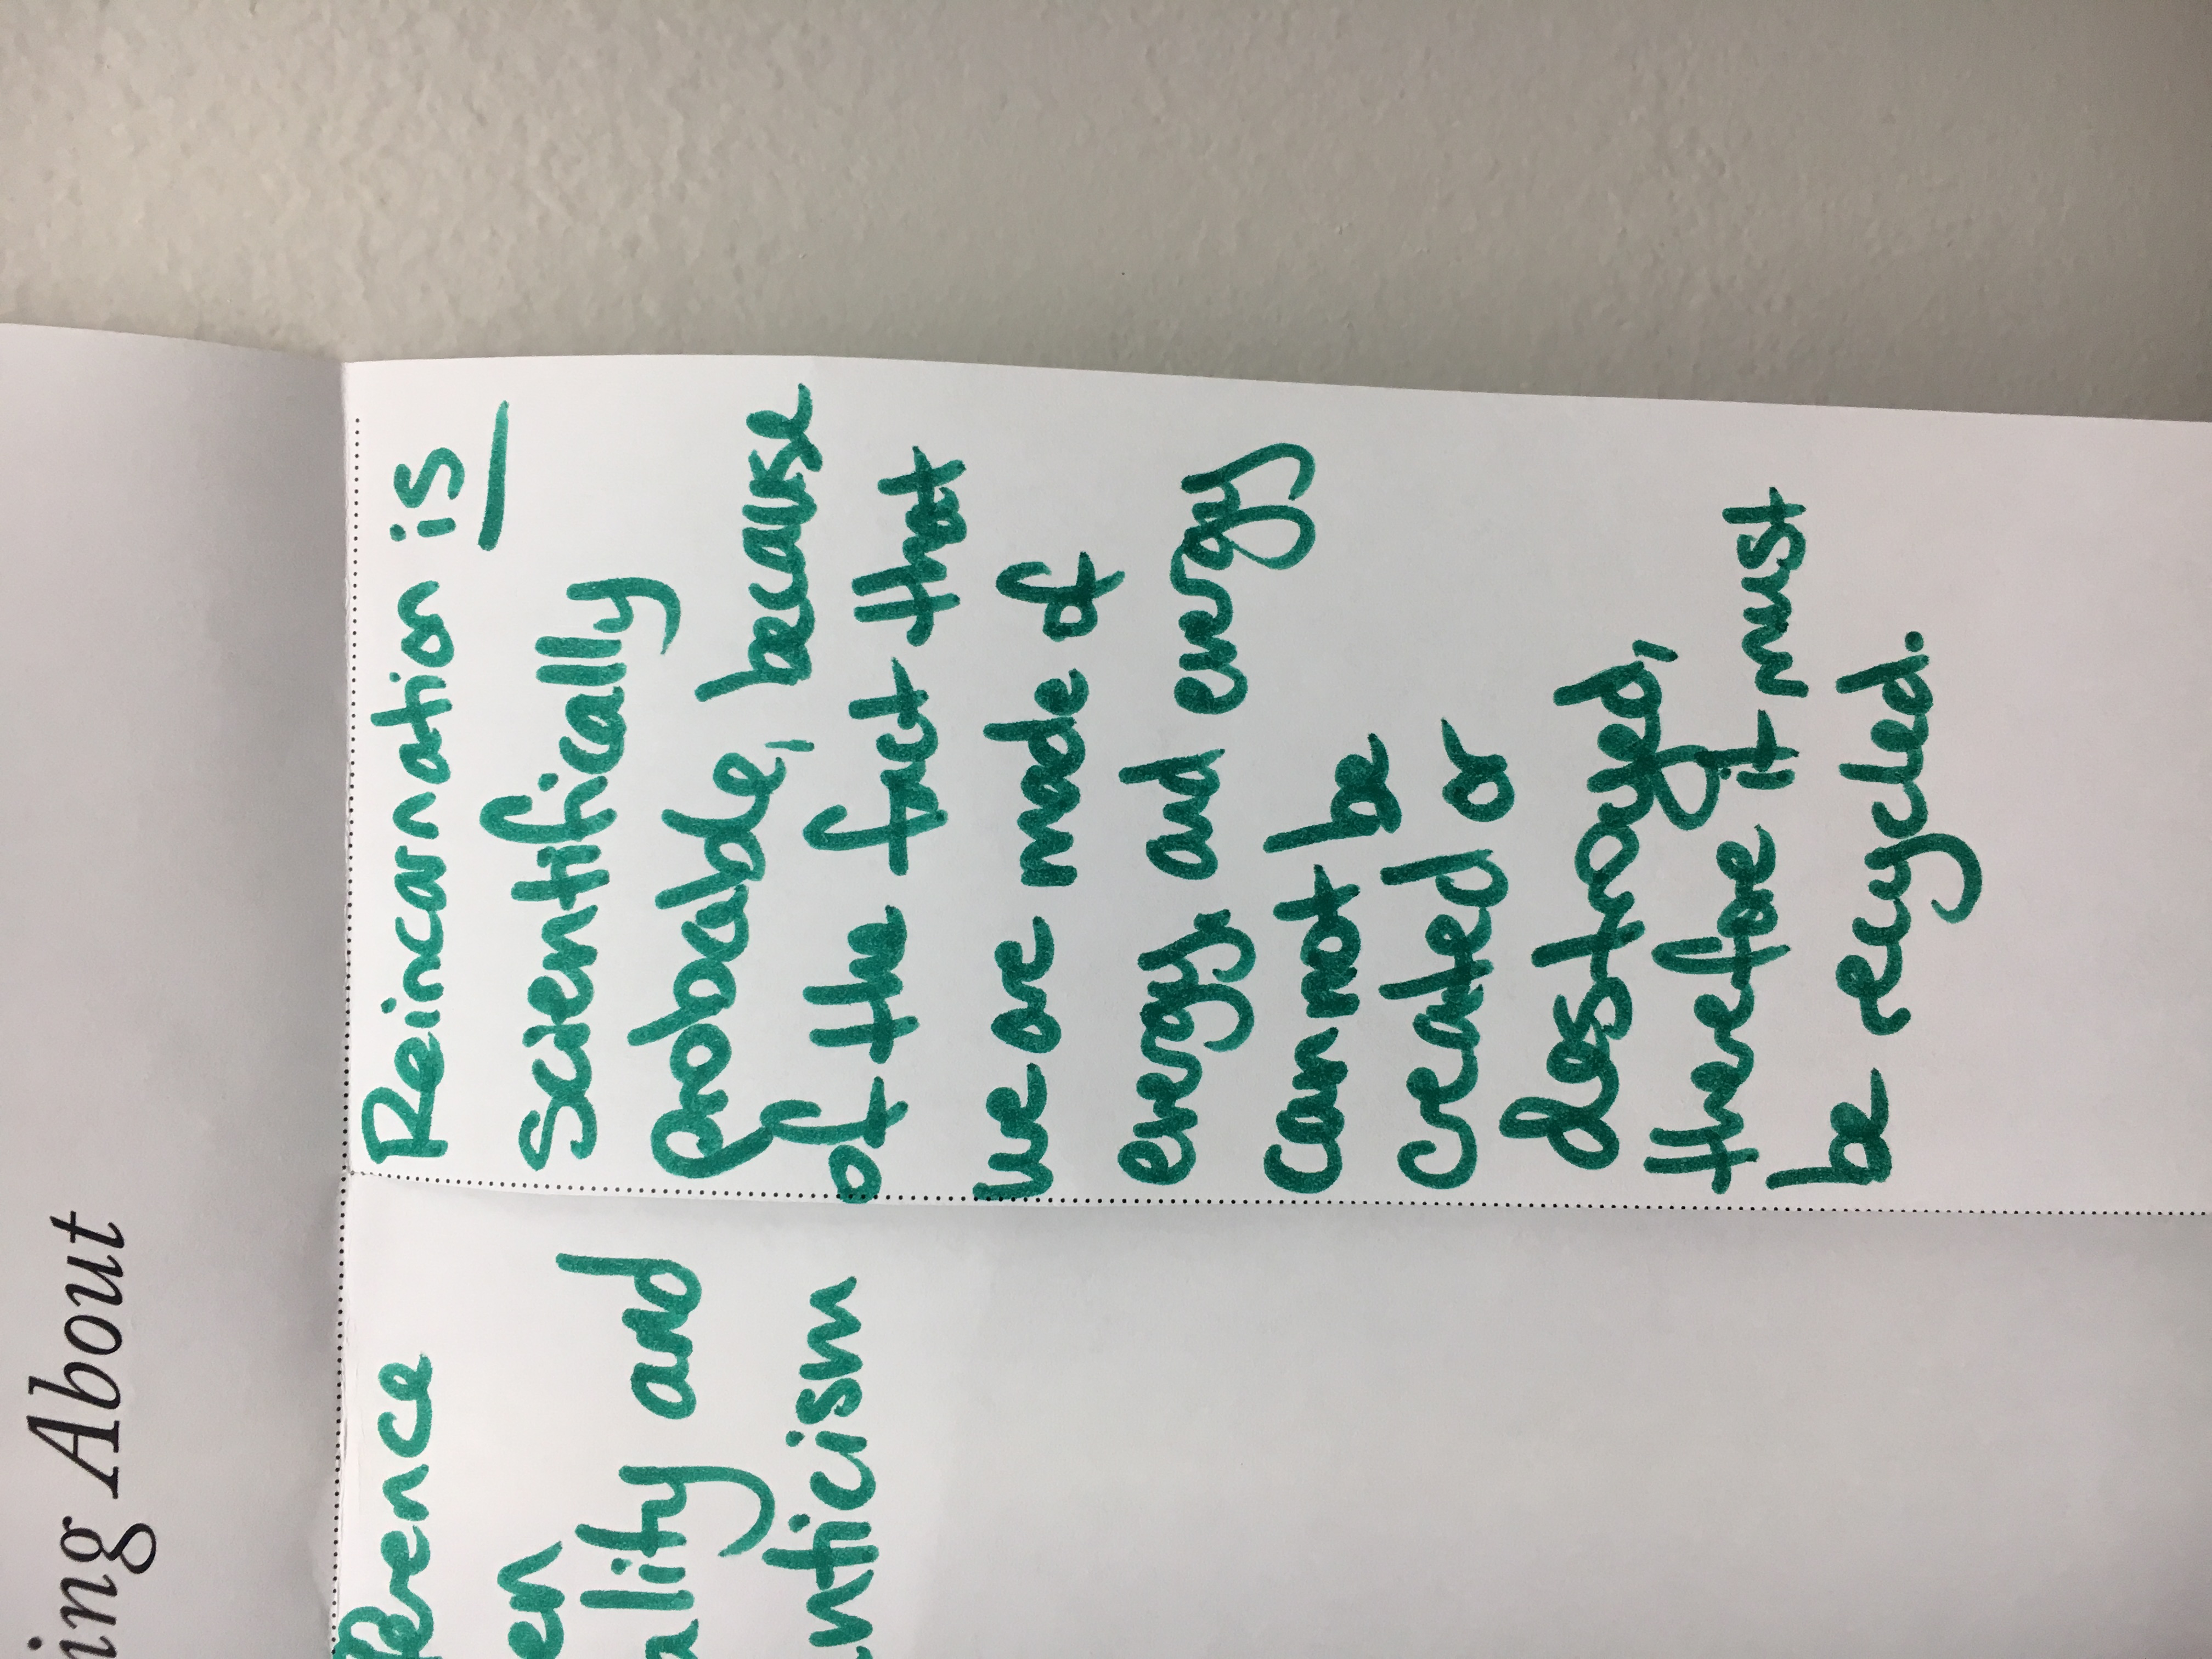 About
Reincarnation is
scientifically
probable, because
of the fact that
we are made of
energy, and energy
can not be
created or
destroyed,
therefore it must
be recycled.
and